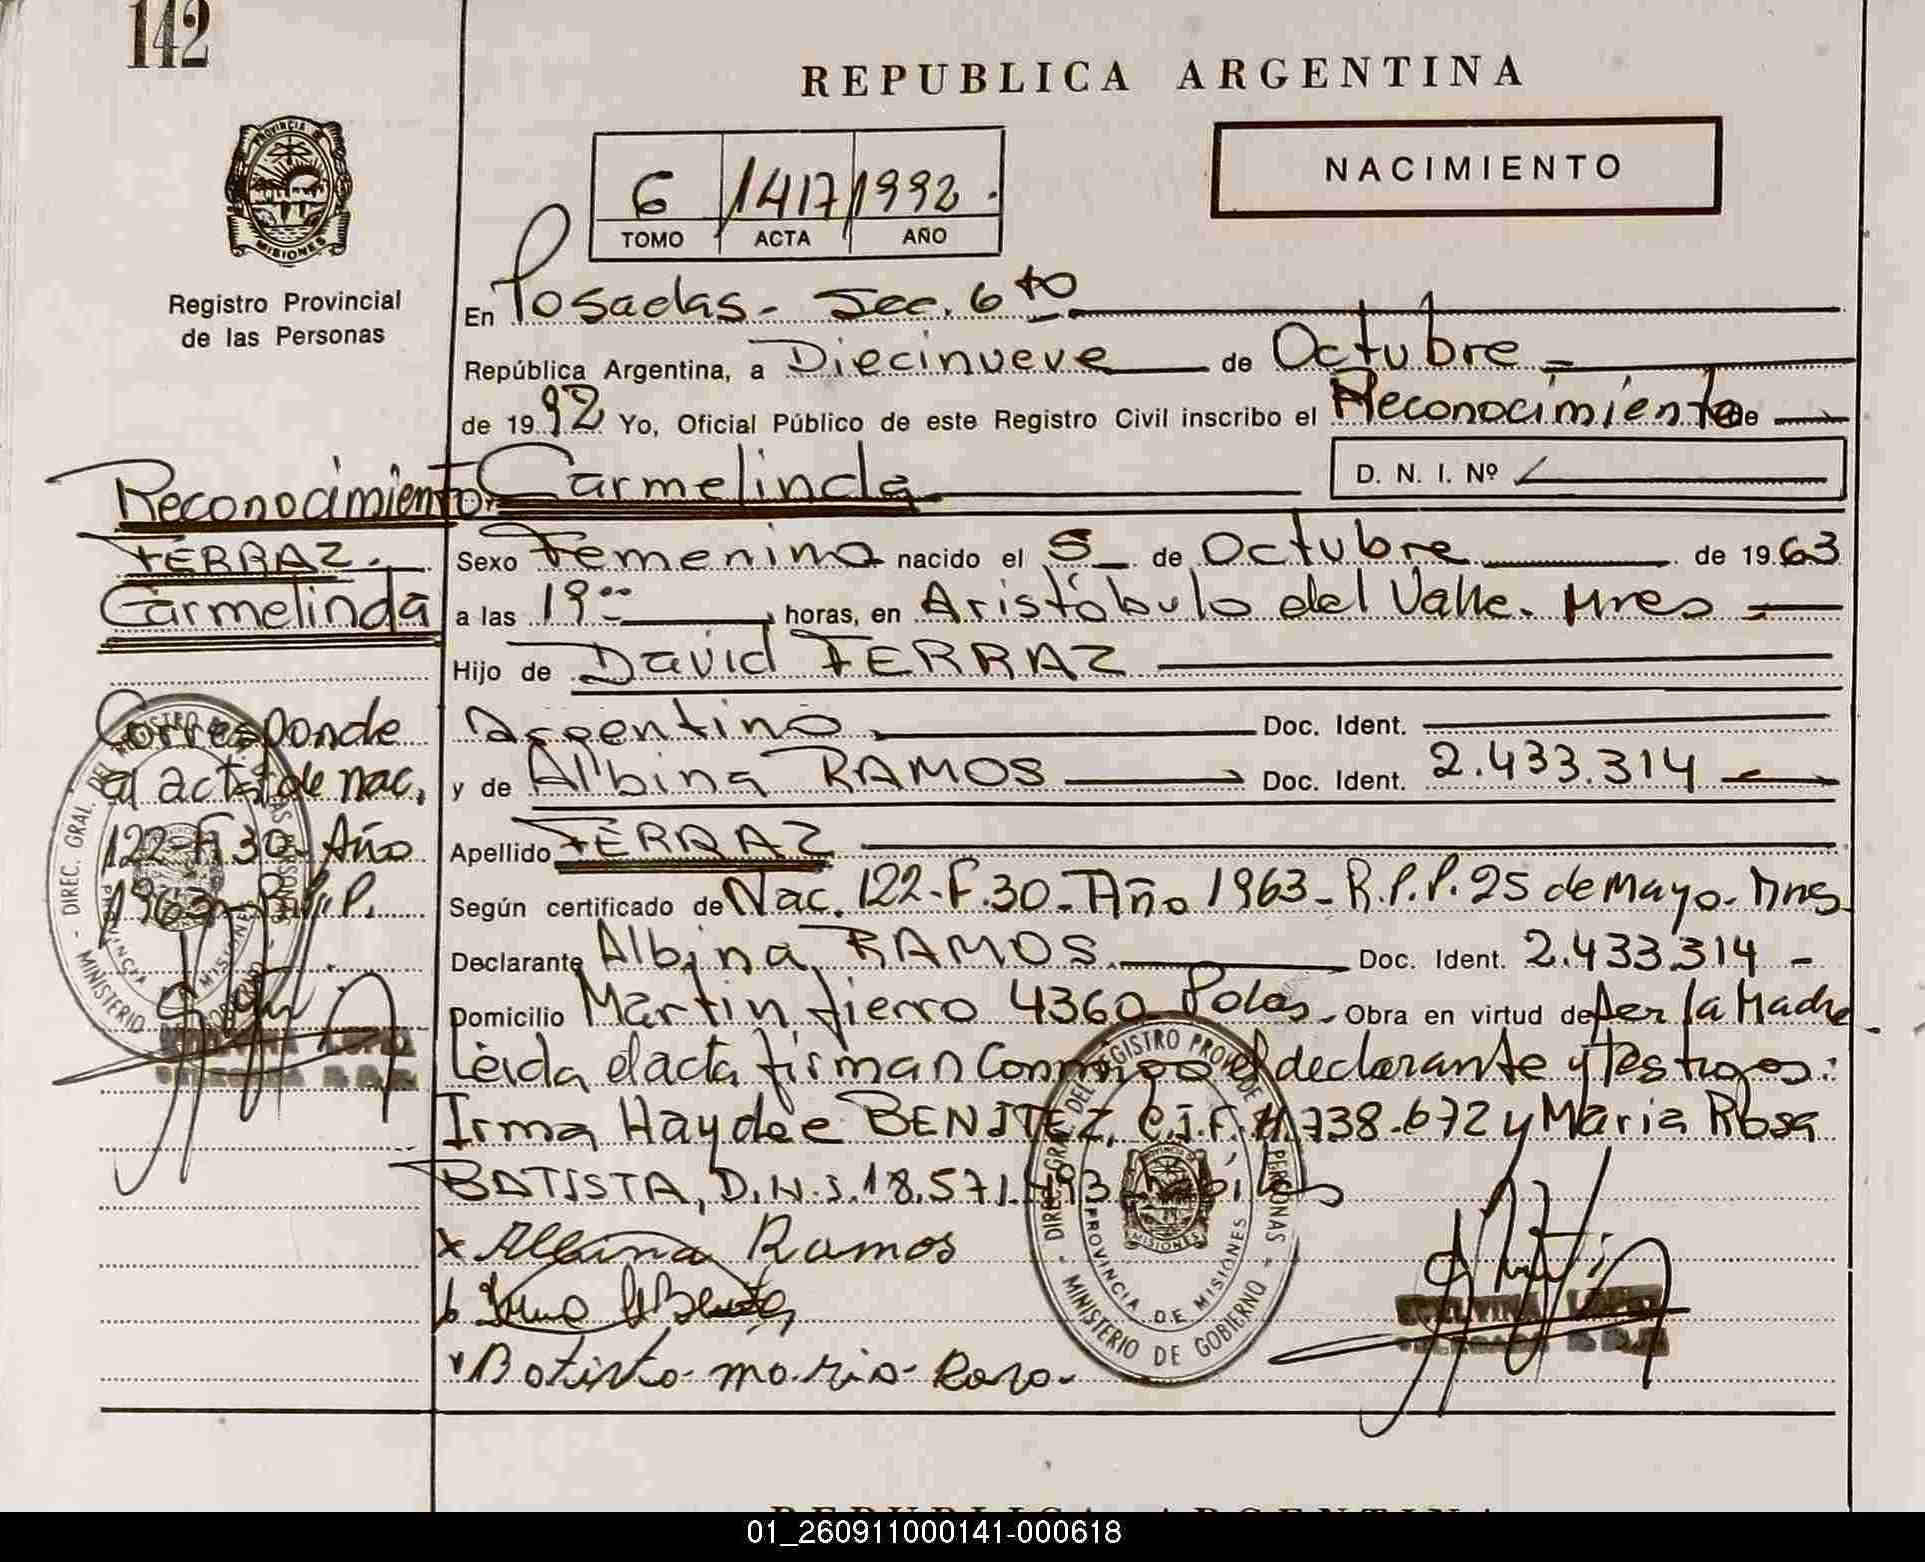 142
REPUBLICA ARGENTINA
NACIMIENTO
6 1417 1992.
TOMO ACTA AÑO
PROVINCIA DE MISIONES
Registro Provincial
de las Personas
En Posadas - Sec. 6to
República Argentina, a Diecinueve de Octubre
de 1992 Yo, Oficial Público de este Registro Civil inscribo el Reconocimiento de
Carmelinda D. N. I. Nº
Sexo Femenino nacido el 5 de Octubre de 1963
a las 19 00 horas, en Aristóbulo del Valle. Mnes
Hijo de David FERRAZ
Argentino Doc. Ident.
y de Albina RAMOS Doc. Ident. 2.433.314
Apellido FERRAZ
Según certificado de Nac. 122-F.30-Año 1963-R.P.P. 25 de Mayo-Mnes
Declarante Albina RAMOS Doc. Ident. 2.433.314 -
Domicilio Martin fierro 4360 Pdas. Obra en virtud de Ser la Madre
Leida el acta firman Conmigo el declarante y Testigos:
Irma Haydée BENITEZ, C.I.F. 738.672 y Maria Rosa
BATISTA, D.N.I. 18.571. 93 Hábiles
x Albina Ramos
Batista maria Rosa
Reconocimiento
FERRAZ.
Carmelinda
Corresponde
al acta de nac,
122-F.30-Año
1963-R.P.P.
DIREC. GRAL. DEL REGISTRO PROV. DE LAS PERSONAS
PROVINCIA DE MISIONES
MINISTERIO DE GOBIERNO
DIREC. GRAL. DEL REGISTRO PROV. DE LAS PERSONAS
PROVINCIA DE MISIONES
MINISTERIO DE GOBIERNO
REPUBLICA ARGENTINA
01_260911000141-000618